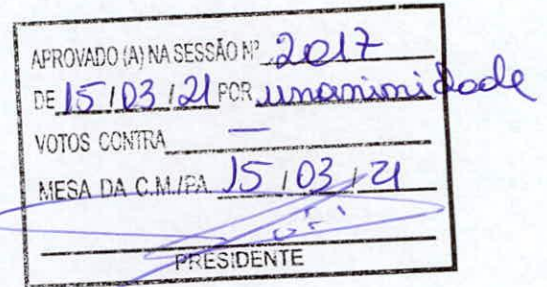 APROVADO (A) NA SESSÃO Nº 2017
DE 15 / 03 / 21 POR unanimidade
VOTOS CONTRA —
MESA DA C.M./PA. 15 / 03 / 21
PRESIDENTE